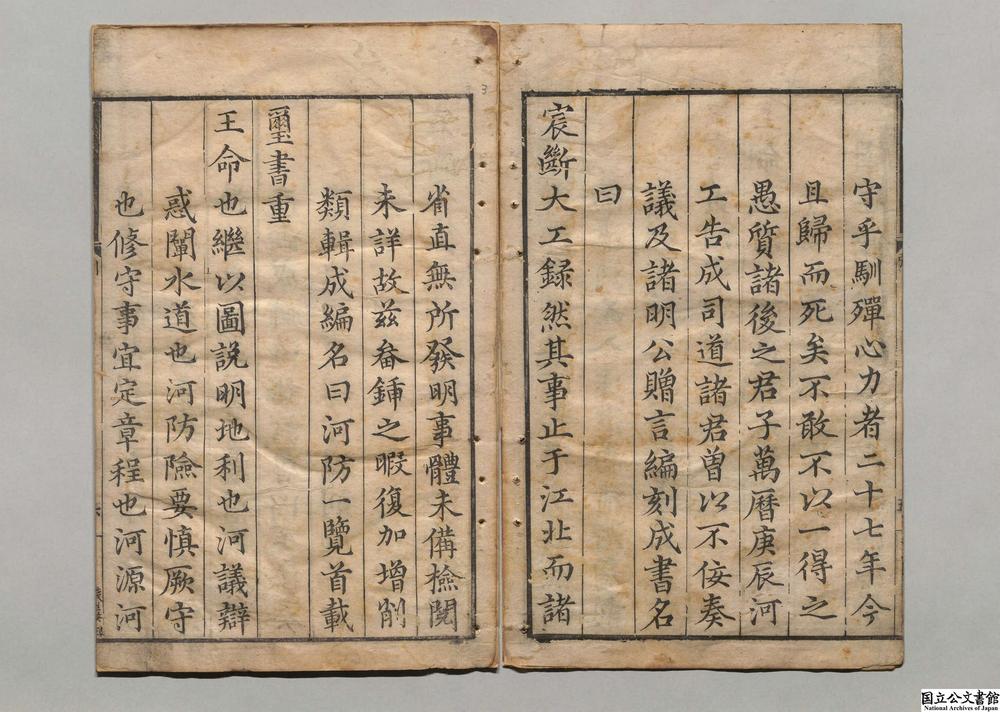 守乎馴殫心力者二十七年今
且歸而死矣不敢不以一得之
愚質諸後之君子萬曆庚辰河
工告成司道諸君曽以不佞奏
議及諸明公贈言編刻成書名
曰
宸斷大工録然其事止于江北而諸
省直無所發明事體未備撿閱
未詳故兹畚鍤之暇復加增削
類輯成編名曰河防一覽首載
璽書重
王命也繼以圖說明地利也河議辯
惑闡水道也河防險要慎厥守
也修守事宜定章程也河源河
国立公文書館
National Archives of Japan